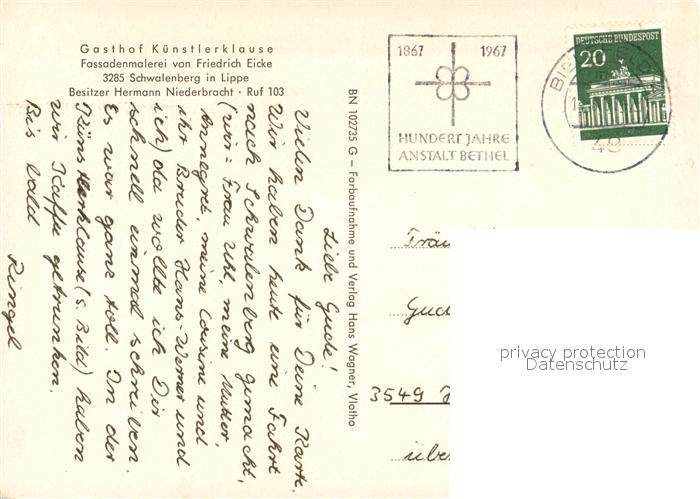 Gasthof Künstlerklause
Fassadenmalerei von Friedrich Eicke
3285 Schwalenberg in Lippe
Besitzer Hermann Niederbracht · Ruf 103
BN 102735 G – Farbaufnahme und Verlag Hans Wagner, Vlotho
1867 1967
HUNDERT JAHRE
ANSTALT BETHEL
DEUTSCHE BUNDESPOST
20
48
Liebe Gudi!
Vielen Dank für Deine Karte.
Wir haben heute eine Fahrt
nach Schwalenberg gemacht,
(wir = Frau Uhl, meine Mutter,
Annegret, meine Cousine und
ihr Bruder Hans-Werner und
ich) da wollte ich Dir
schnell einmal schreiben.
Es war ganz toll. In der
Künstlerklause (s. Bild) haben
wir Kaffe getrunken.
Bis bald
Ringel
Fräu
Gud
3549
übe
privacy protection
Datenschutz